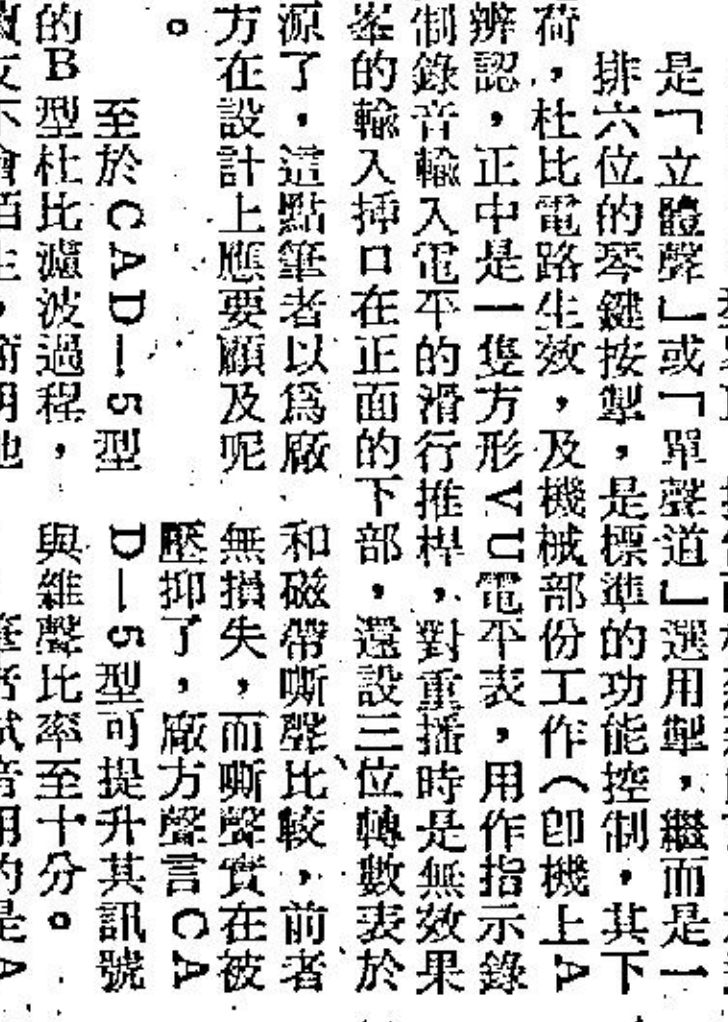 是「立體聲」或「單聲道」選用掣，繼而是一
排六位的琴鍵按掣，是標準的功能控制，其下
荷，杜比電路生效，及機械部份工作（即機上A
辨認，正中是一隻方形VU電平表，用作指示錄
制錄音輸入電平的滑行推桿，對重播時是無效果
峯的輸入插口在正面的下部，還設三位轉數表於
源了，這點筆者以爲廠
方在設計上應要顧及呢
。
至於CAD—5型
的B型杜比濾波過程，
和磁帶嘶聲比較，前者
無損失，而嘶聲實在被
壓抑了，廠方聲言CA
D—5型可提升其訊號
與雜聲比率至十分。